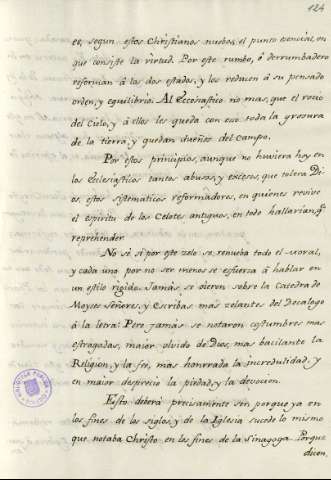 124
es, segun estos Christianos nuebos, el punto esencial, en
que consiste la virtud. Por este rumbo, ô derrumbadero
reforman â los dos estados, y los reducen â su pensado
orden, y equilibrio. Al Eccõsiastico no mas, que el rocio
del Cielo, y â ellos les queda con eso toda la grosura
de la tierra, y quedan dueños del campo.
Por estos principios, aunque no huviera hoy en
los Eclesiasticos tantos abusos, y excesos, que tolera Di
os, estos sistematicos reformadores, en quienes revive
el espiritu de los Celotes antiguos, en todo hallarian q.
reprehender
No se si por este zelo se renueba todo el moral,
y cada uno por no ser menos se esfuerza â hablar en
un estilo rigido. Jamàs se vieron sobre la Catedra de
Moyses Señores, y Escribas mas zelantes del Decalogo
â la letra: Pero jamas se notaron costumbres mas
estragadas, maior olvido de Dios, mas bacilante la
Religion, y la feè, mas honrrada la incredulidad, y
en maior desprecio la piedad, y la devocion.
Esto deberà precisamente ser porque ya en
los fines de los siglos, y de la Iglesia sucede lo mismo
que notaba Christo en los fines de la Sinagoga. Porque
dicen